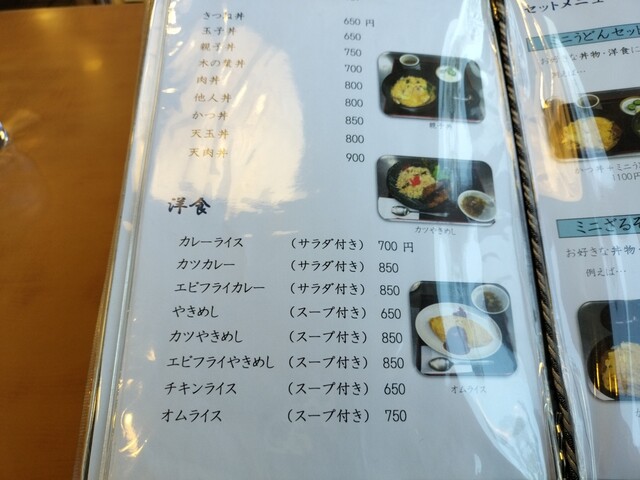 きつね丼 650 円
玉子丼 650
親子丼 750
木の葉丼 700
肉丼 800
他人丼 800
かつ丼 850
天玉丼 800
天肉丼 900
親子丼
カツやきめし
洋食
カレーライス (サラダ付き) 700 円
カツカレー (サラダ付き) 850
エビフライカレー (サラダ付き) 850
やきめし (スープ付き) 650
カツやきめし (スープ付き) 850
エビフライやきめし (スープ付き) 850
チキンライス (スープ付き) 650
オムライス (スープ付き) 750
オムライス
セットメニュー
ミニうどんセット
お好きな丼物・洋食に
例えば…
かつ丼+ミニう
1100円
ミニざるそ
お好きな丼物・
例えば…